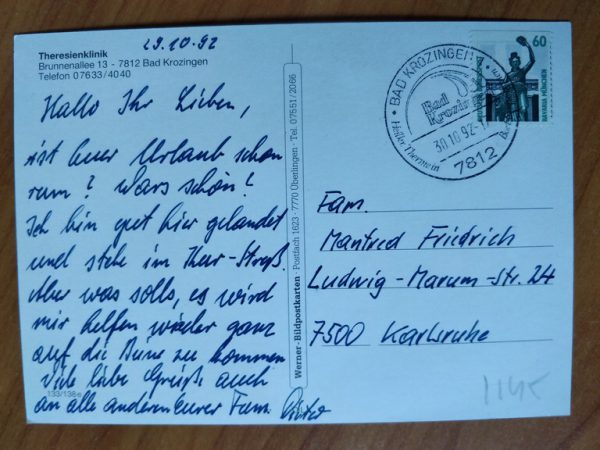 29.10.92
Theresienklinik
Brunnenallee 13 - 7812 Bad Krozingen
Telefon 07633/4040
Hallo Ihr Lieben,
ist euer Urlaub schon
rum? Wars schön?
Ich bin gut hier gelandet
und stehe im Kur-Streß.
Aber was solls, es wird
mir helfen wieder ganz
auf die Beine zu kommen
Viele liebe Grüße auch
an alle anderen Eurer Fam.
133/138e
Werner-Bildpostkarten · Postfach 1623 · 7770 Überlingen · Tel. 07551/2066
BAD KROZINGEN
Bad
Krozingen
30.10.92
7812
60
BAVARIA MÜNCHEN
Fam.
Manfred Friedrich
Ludwig-Marum-Str. 24
7500 Karlsruhe